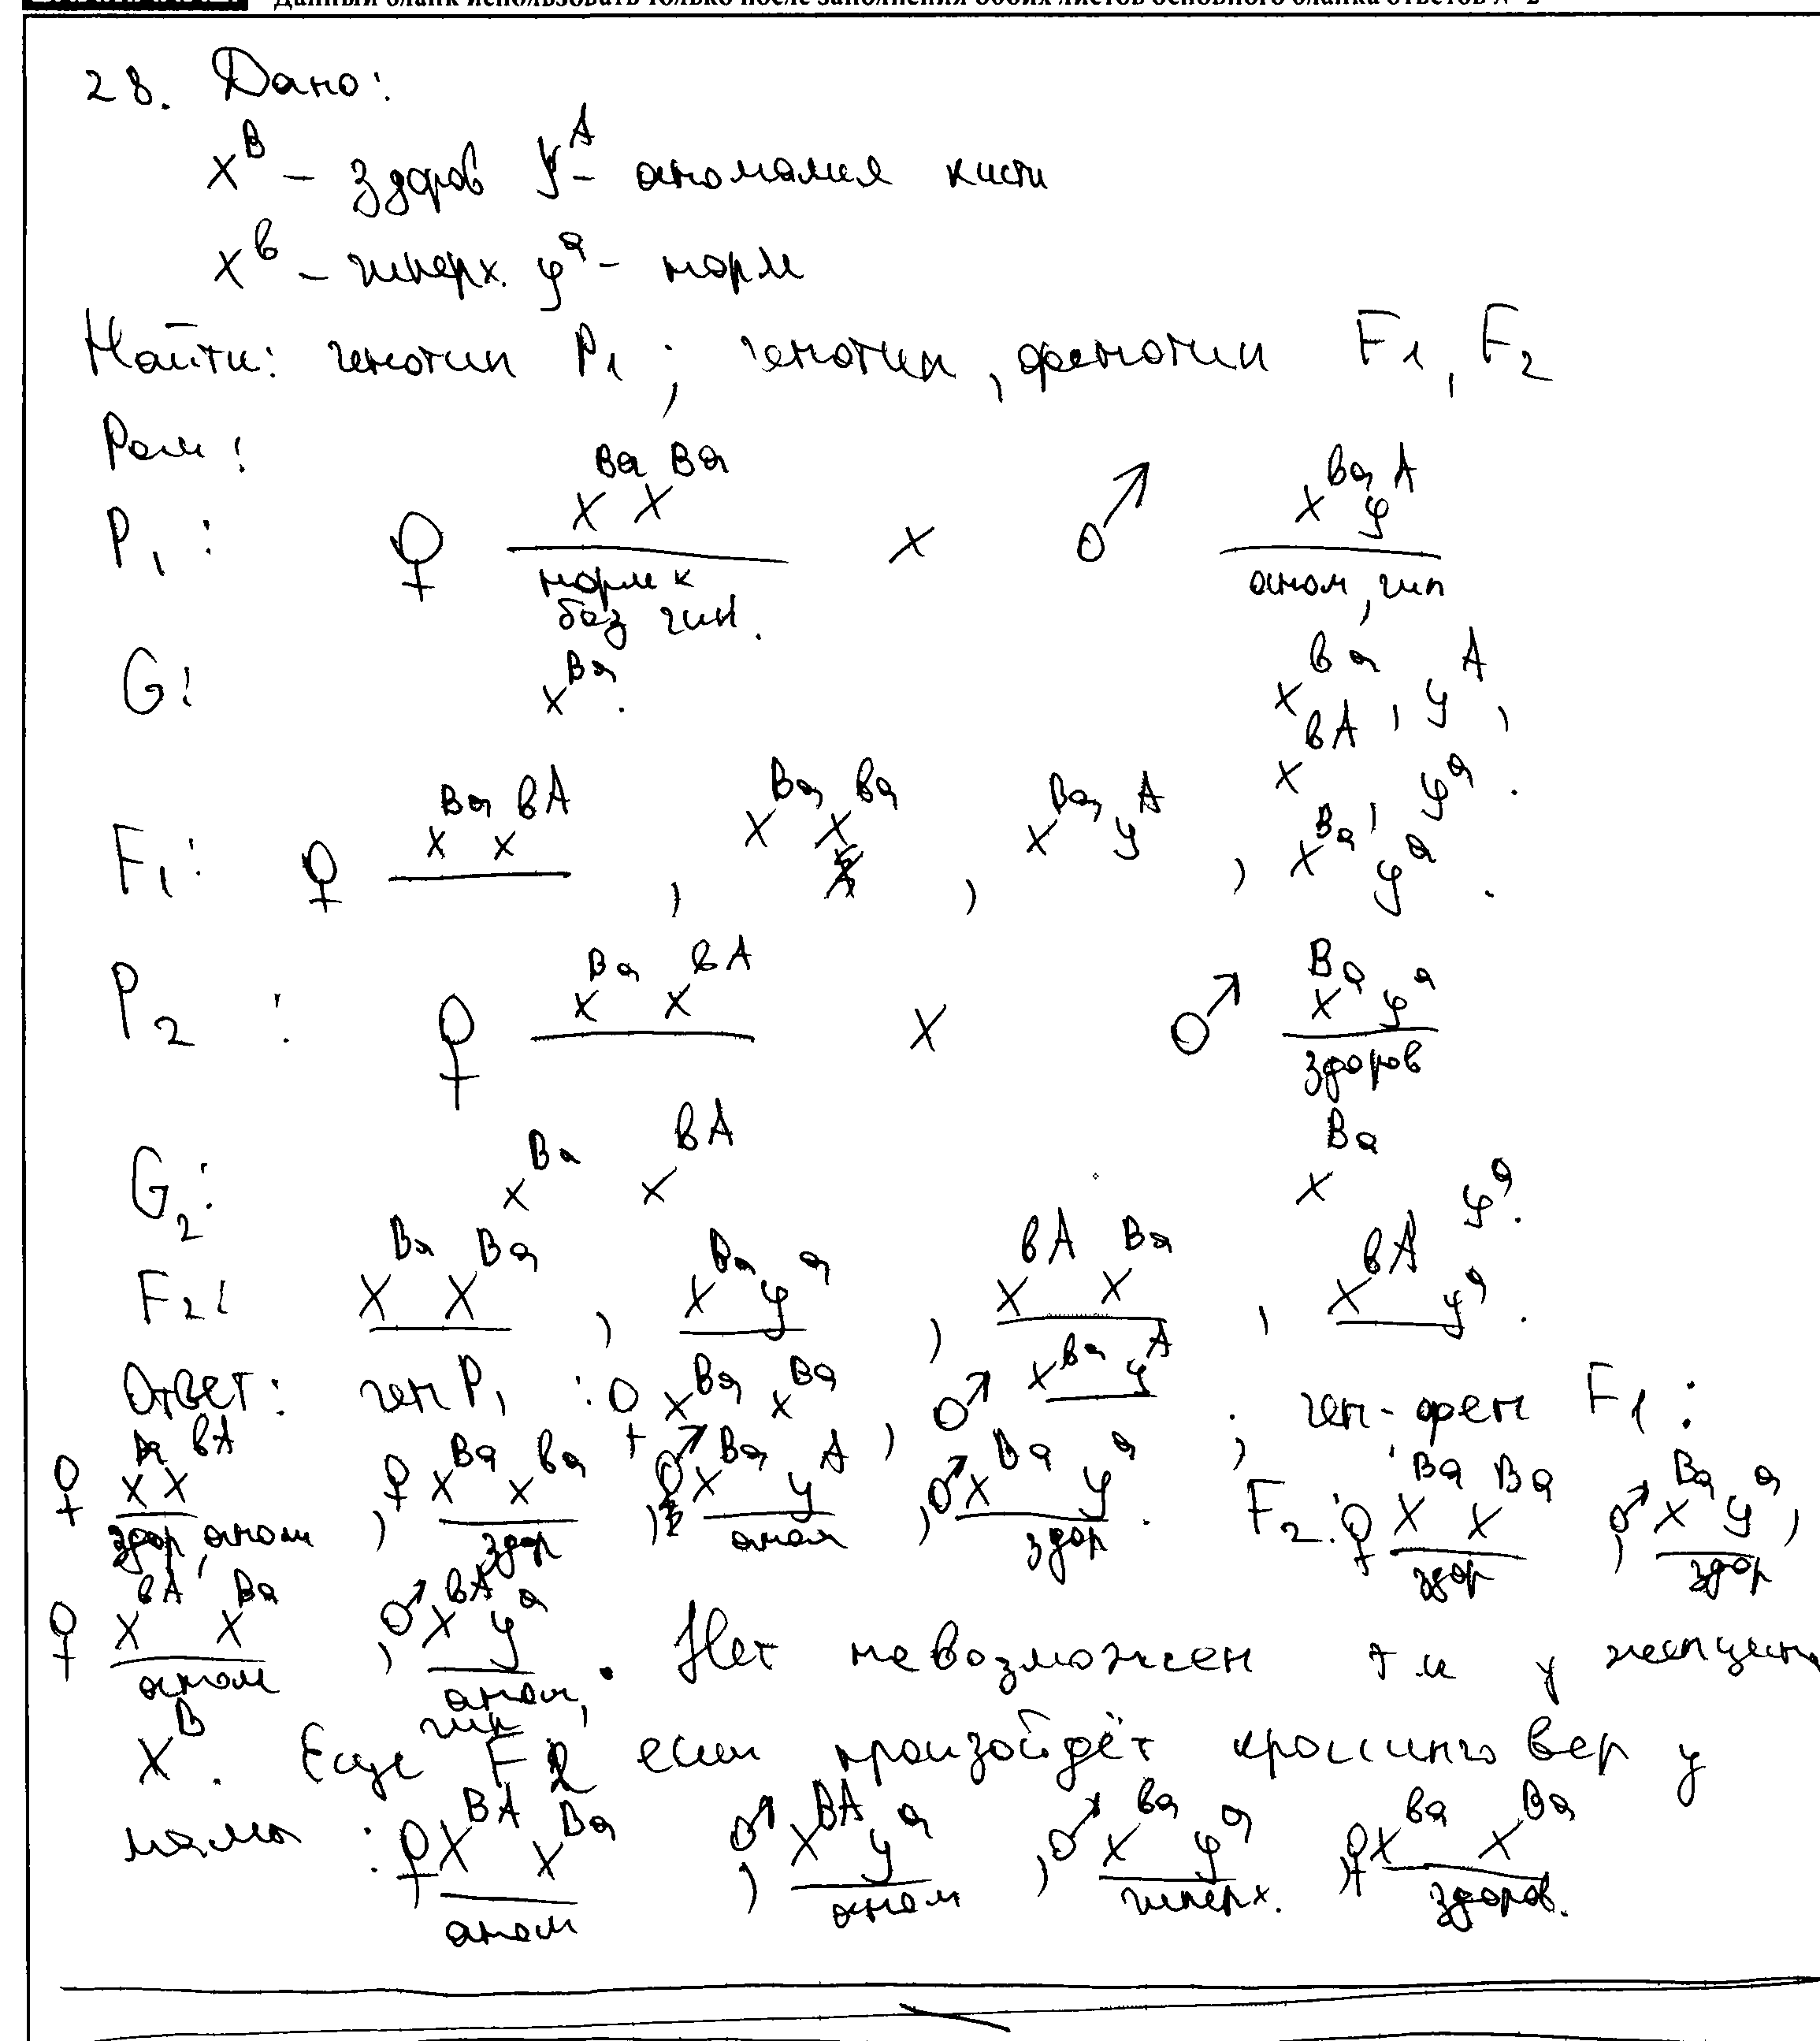 Данный бланк использовать только после заполнения обоих листов основного бланка ответов № 2
28. Дано:
X^B – здоров y^A – аномалия кисти
X^b – гиперх. y^a – норм
Найти: генотип P₁; генотип, фенотип F₁, F₂
Реш:
P₁: ♀ X^Ba X^Ba × ♂ X^ba y^A
норм к без гип. аном, гип
G: X^Ba. X^ba, y^A,
X^bA, y^a.
F₁: ♀ X^Ba X^bA, X^Ba X^ba, X^Ba y^A, X^Ba y^a.
P₂: ♀ X^Ba X^bA × ♂ X^Ba y^a
здоров
G₂: X^Ba X^bA X^Ba y^a.
F₂: X^Ba X^Ba, X^Ba y^a, X^bA X^Ba, X^bA y^a.
Ответ: ген P₁: ♀ X^Ba X^Ba, ♂ X^ba y^A; ген-фен F₁:
♀ X X^bA, ♀ X^Ba X^ba, ♂ X^Ba y^A, ♂ X^Ba y^a. F₂: ♀ X^Ba X^Ba, ♂ X^Ba y^a,
аном здор аном здор здор здор
♀ X^bA X^Ba, ♂ X^bA y^a. Нет невозможен т к у женщин
аном аном, гип
X^B. Еще F₂ если произойдёт кроссинговер у
мамы: ♀ X^BA X^Ba, ♂ X^BA y^a, ♂ X^ba y^a, ♀ X^ba X^Ba
аном аном гиперх. здоров.